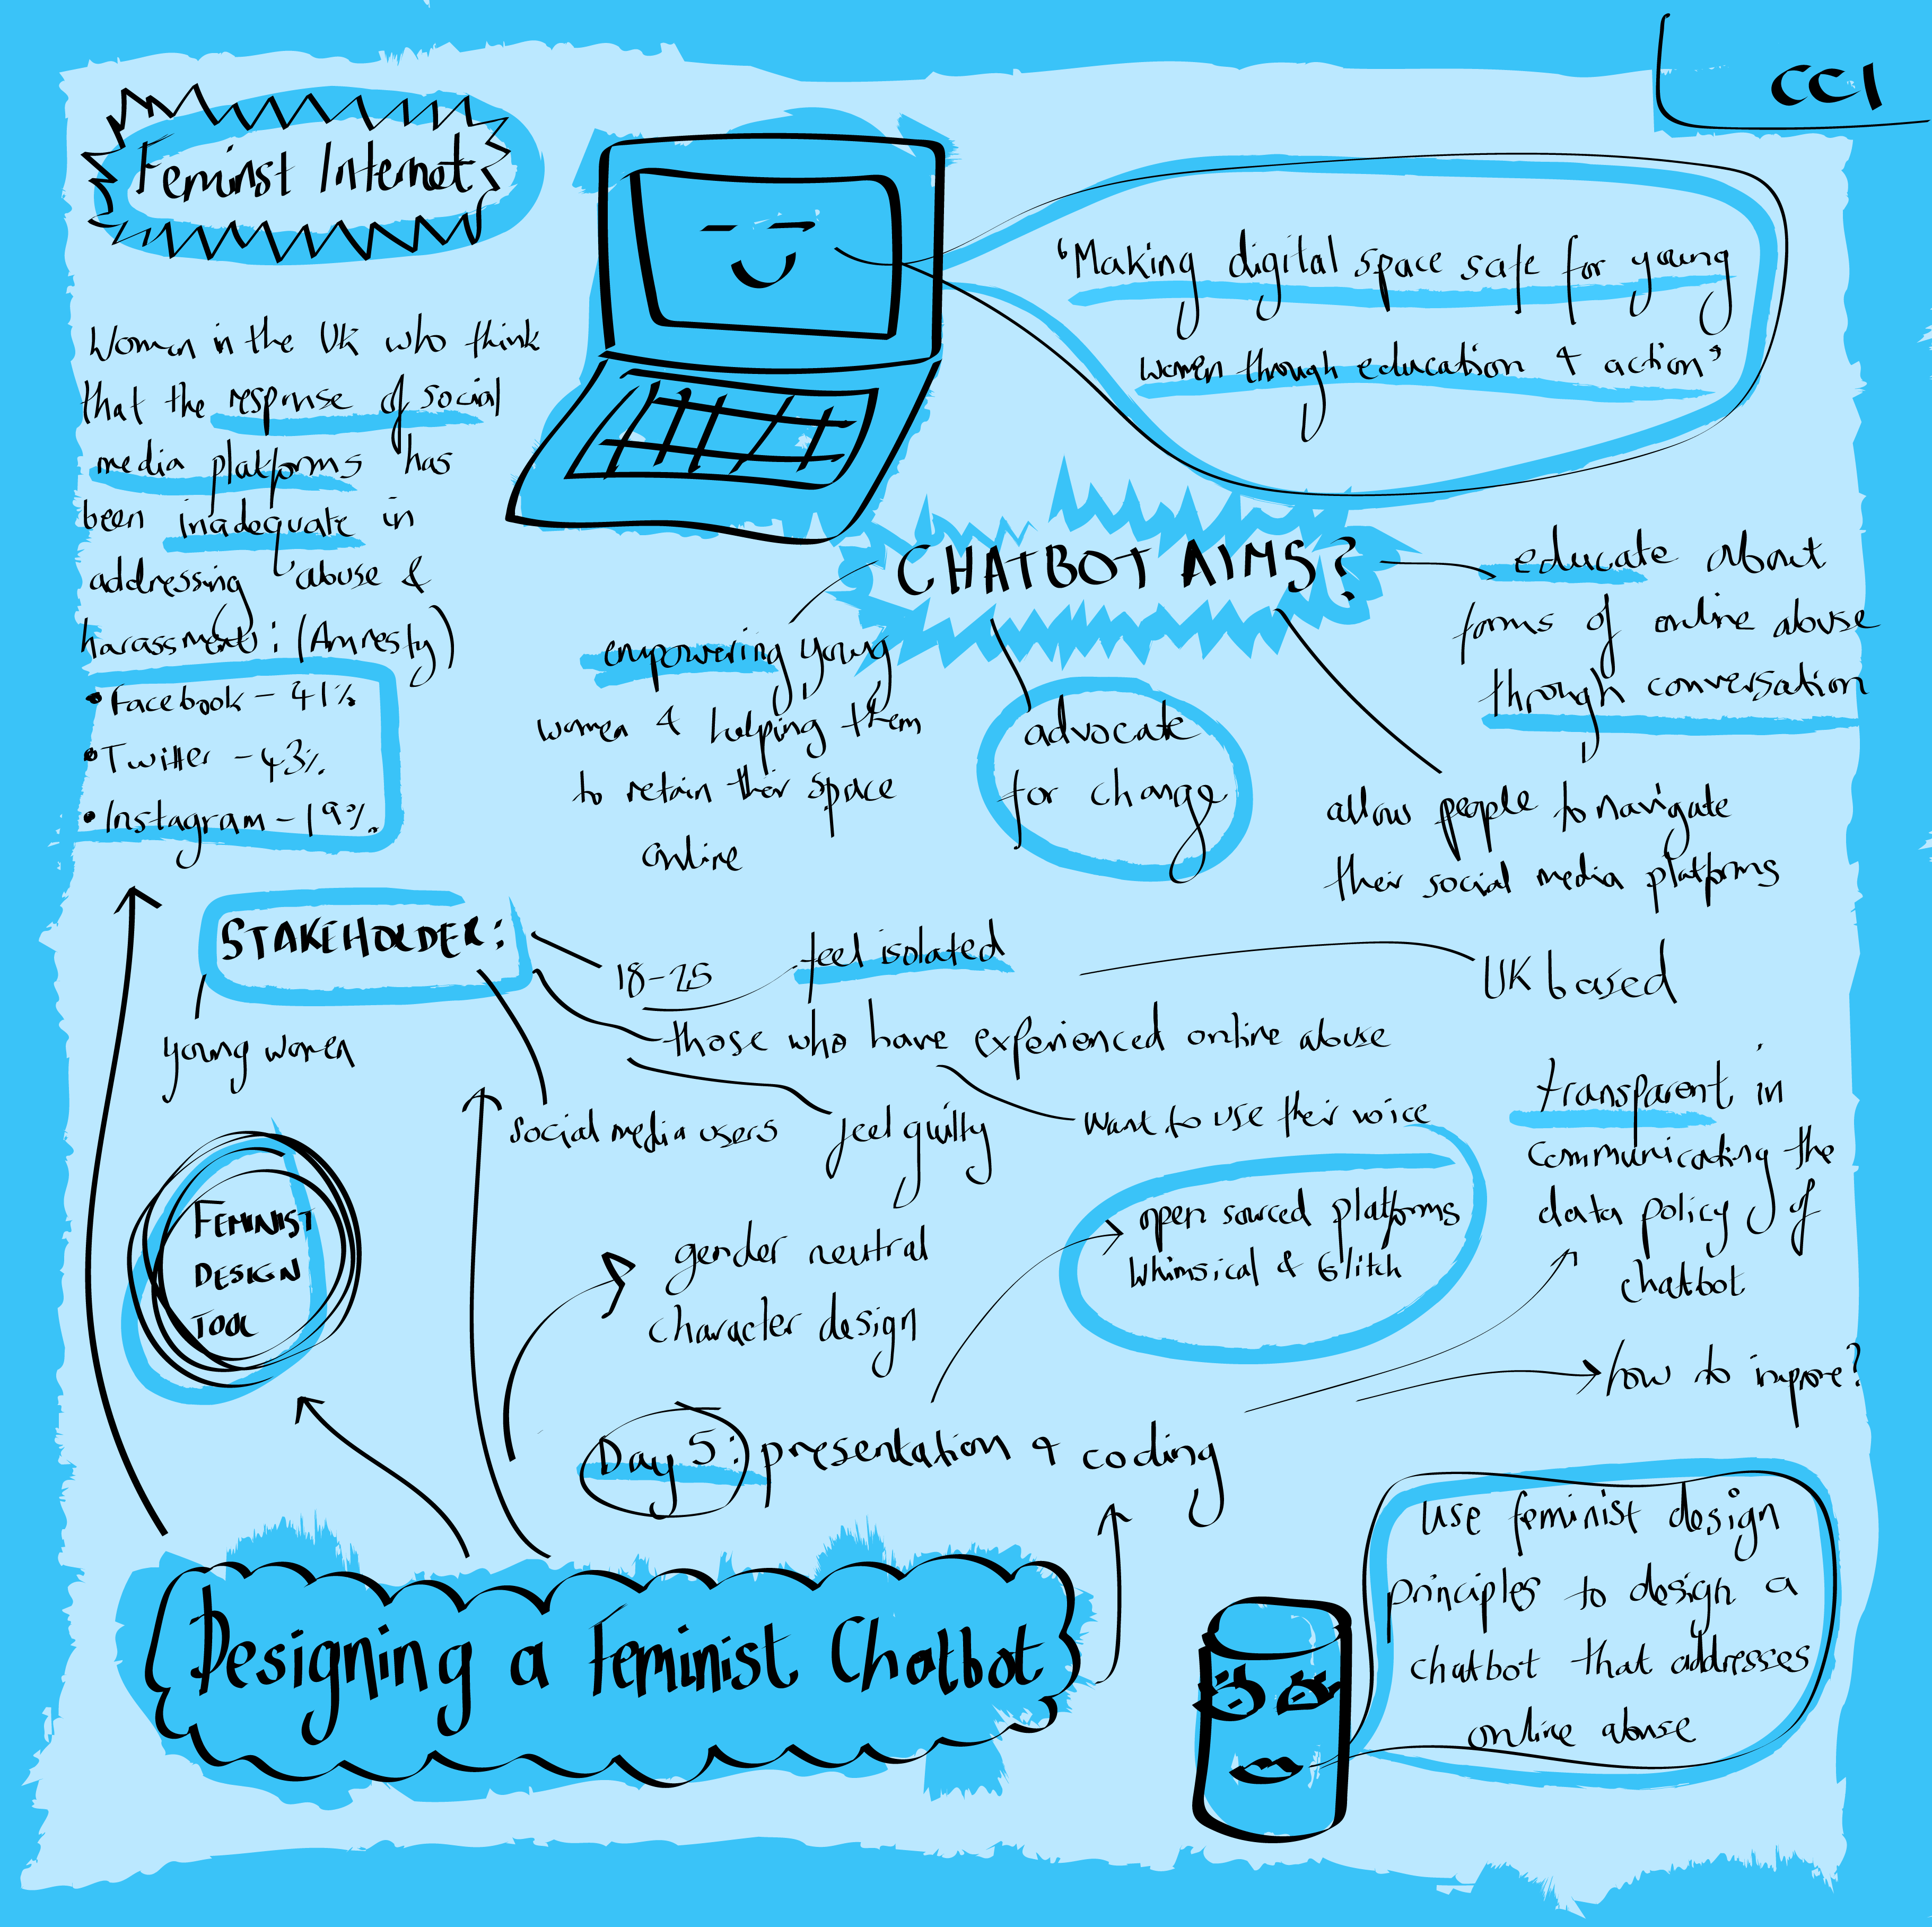 CCI
Feminist Internet
Women in the UK who think
that the response of social
media platforms has
been inadequate in
addressing abuse &
harassment: (Amnesty)
• Facebook - 41%
• Twitter - 43%
• Instagram - 19%
"Making digital space safe for young
women through education & action"
CHATBOT AIMS?
empowering young
women & helping them
to retain their space
online
advocate
for change
educate about
forms of online abuse
through conversation
allow people to navigate
their social media platforms
STAKEHOLDER:
young women
18-25
feel isolated
UK based
those who have experienced online abuse
social media users
feel guilty
want to use their voice
FEMINIST
DESIGN
TOOL
gender neutral
character design
open sourced platforms
whimsical & Glitch
transparent in
communicating the
data policy of
chatbot
how to improve?
Day 5: presentation & coding
Designing a Feminist Chatbot
use feminist design
principles to design a
chatbot that addresses
online abuse